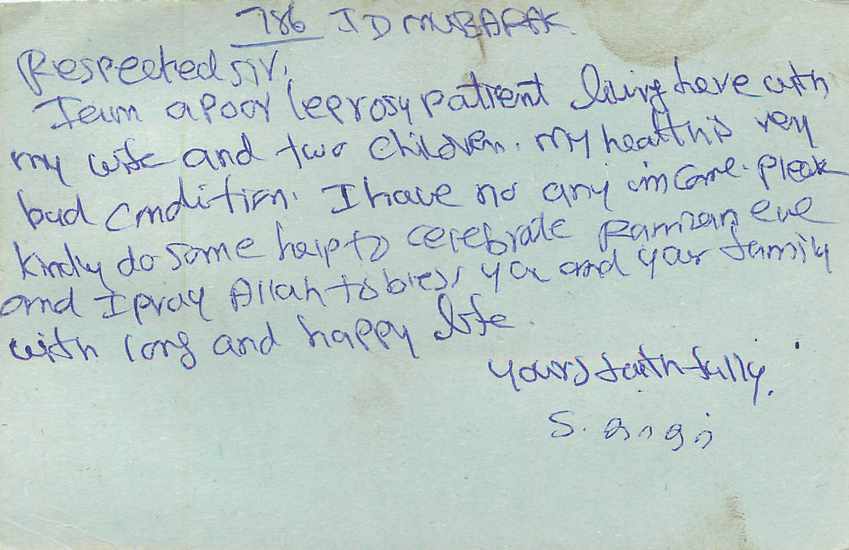 786 ID MUBARAK.
Respected sir,
I am a poor leprosy patient living here with
my wife and two children. my health is very
bad condition. I have no any income. please
kindly do some help to cerebrate Ramzan eve
and I pray Allah to bless you and your family
with long and happy life.
yours faithfully,
S.